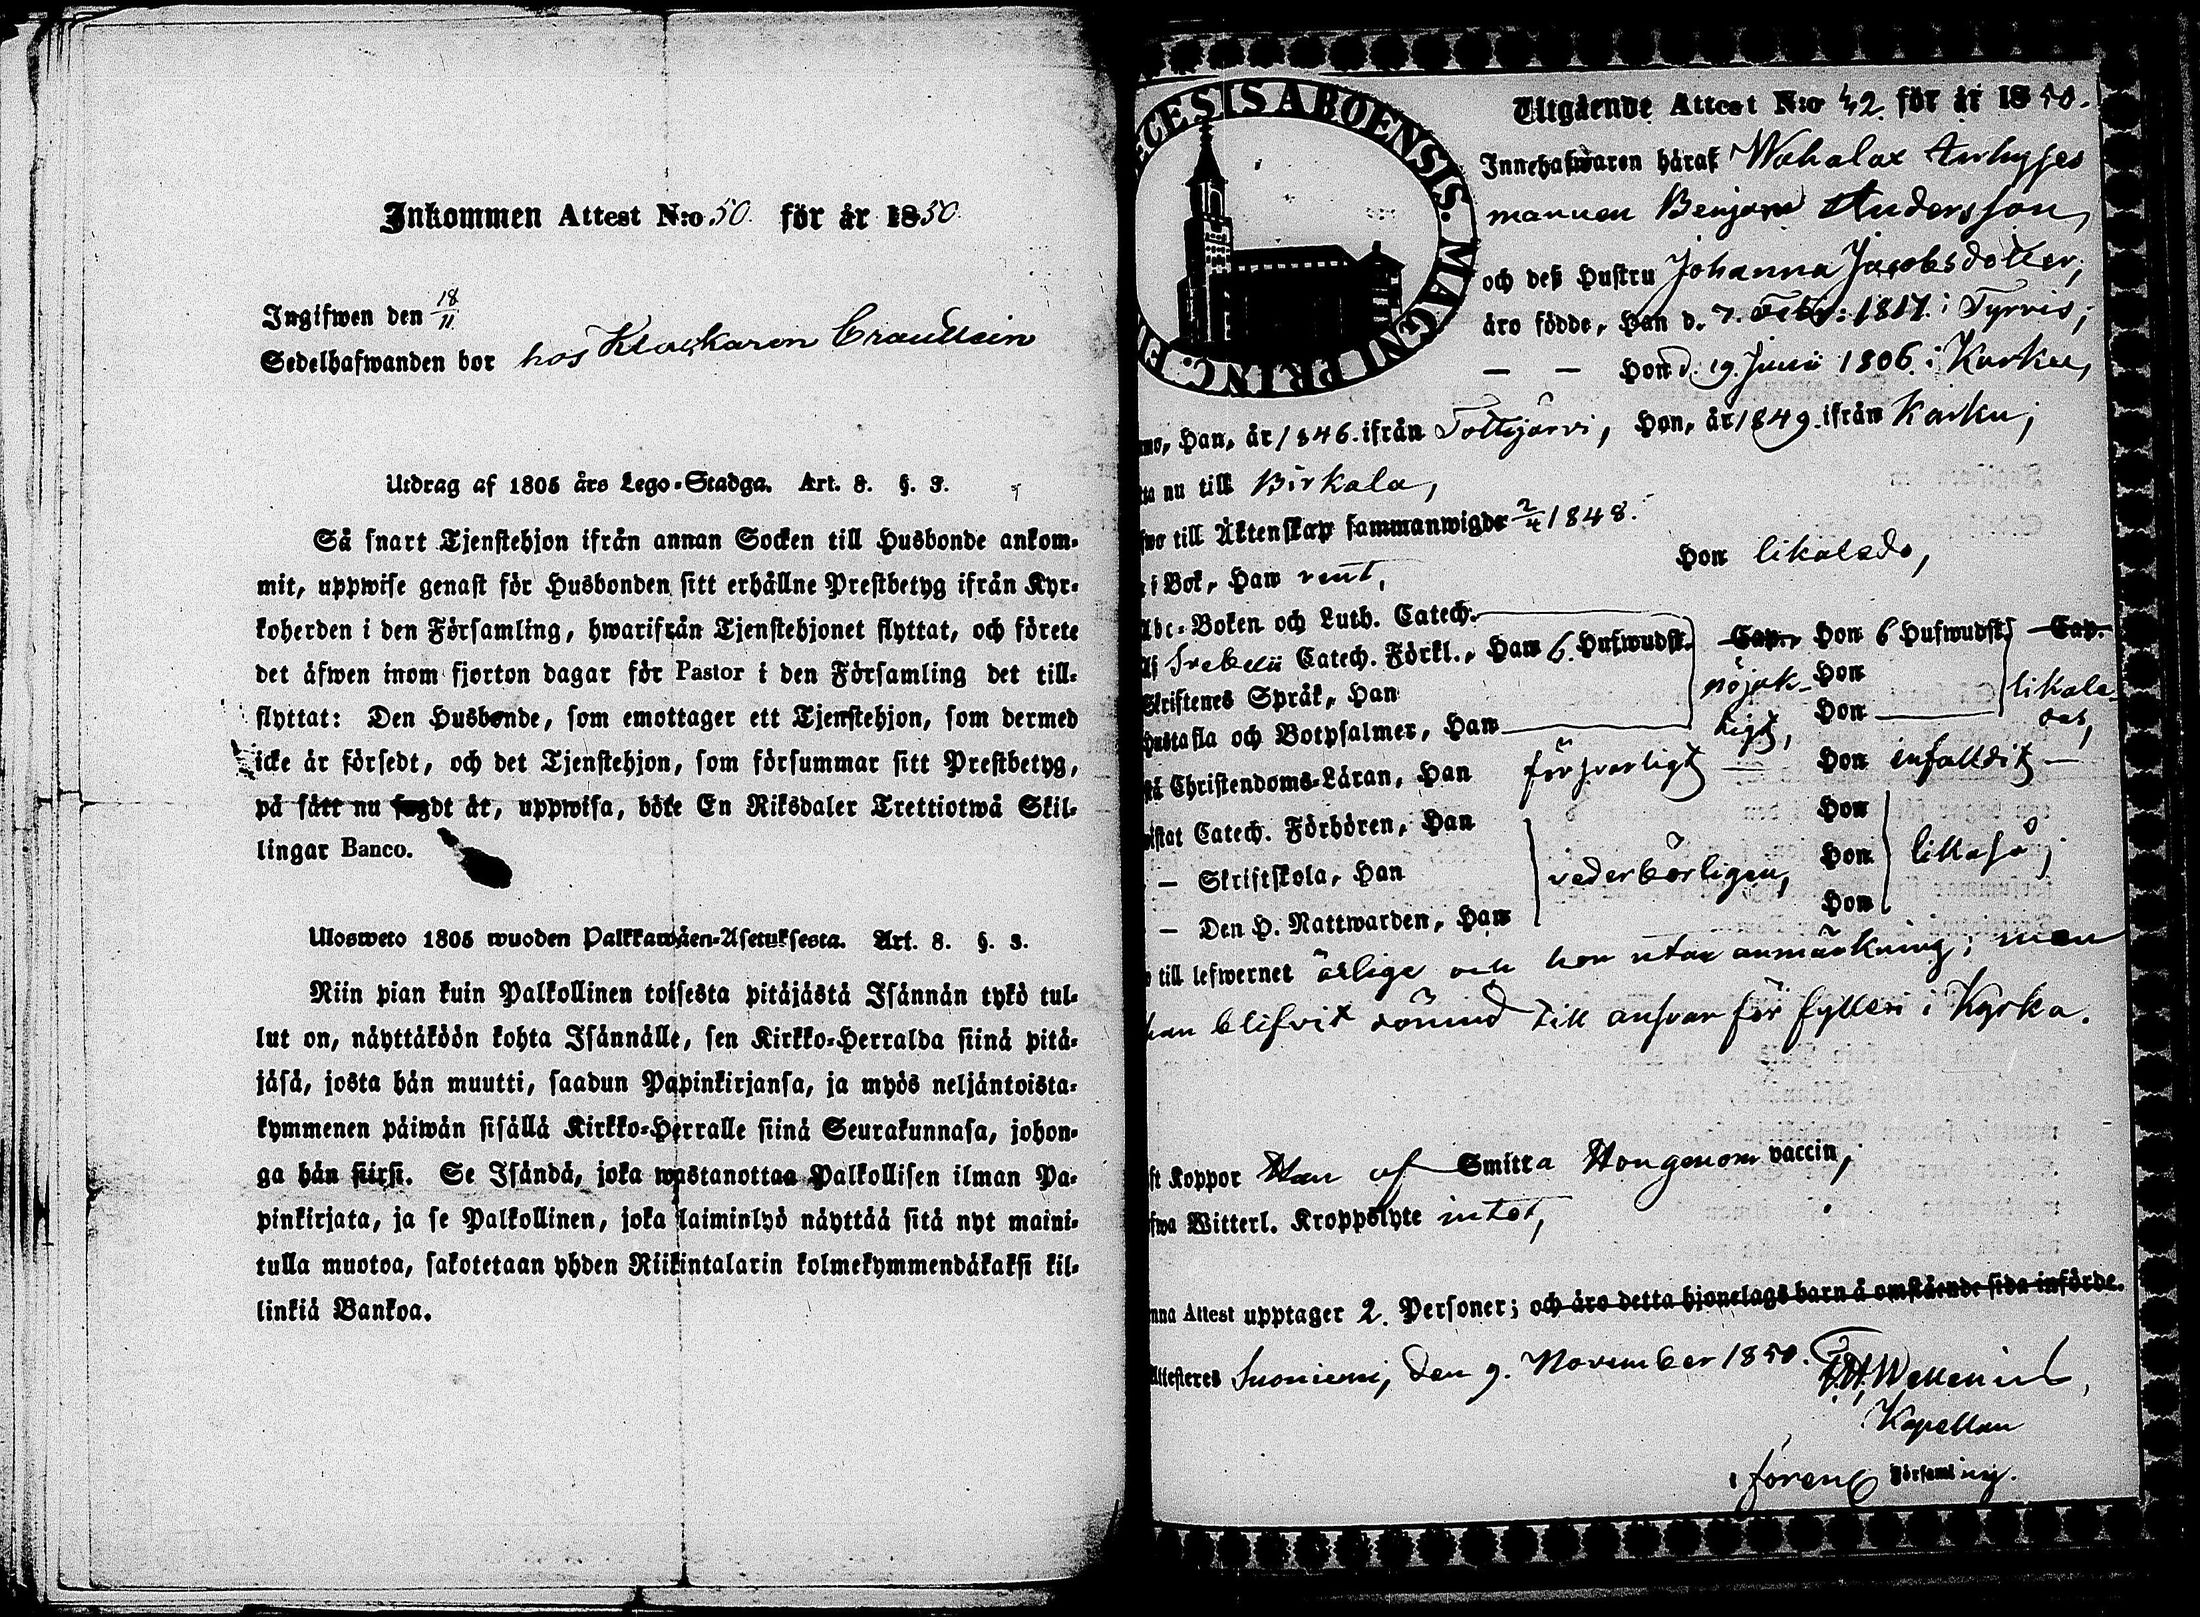 Inkommen Attest N:o 50. för år 1850.
Ingifwen den 18/11
Sedelhafwanden bor hos Klockaren
Utdrag af 1805 års Lego-Stadga. Art. 8. §. 3.
Så snart Tjenstehjon ifrån annan Socken till Husbonde ankom-
mit, uppwise genast för Husbonden sitt erhållne Prestbetyg ifrån Kyr-
koherden i den Församling, hwarifrån Tjenstehjonet flyttat, och förete
det äfwen inom fjorton dagar för Pastor i den Församling det till-
flyttat: Den Husbonde, som emottager ett Tjenstehjon, som dermed
icke är försedt, och det Tjenstehjon, som försummar sitt Prestbetyg,
på sätt nu sagdt är, uppwisa, böte En Riksdaler Trettiotwå Skil-
lingar Banco.
Ulosweto 1805 wuoden Palkkawäen-Asetuksesta. Art. 8. §. 3.
Niin pian kuin Palkollinen toisesta pitäjästä Isännän tykö tul-
lut on, näyttäköön kohta Isännälle, sen Kirkko-Herralda siinä pitä-
jäsä, josta hän muutti, saadun Papinkirjansa, ja myös neljäntoista-
kymmenen päiwän sisällä Kirkko-Herralle siinä Seurakunnasa, johon-
ga hän siirsi. Se Isändä, joka wastanottaa Palkollisen ilman Pa-
pinkirjata, ja se Palkollinen, joka laiminlyö näyttää sitä nyt maini-
tulla muotoa, sakotetaan yhden Riikintalarin kolmekymmendäkaksi kil-
linkiä Bankoa.
CESIS ABOENSIS. MAGNI PRINC. FI
Utgående Attest N:o 42. för år 1850.
Innehafwaren häraf Wahalax
mannen Benjam Andersson,
och deß Hustru Johanna Jacobsdotter,
äro födde, Han d. 7. Febr: 1817. i Tyrvis;
— — Hon d. 19. Junii 1806. i Karku,
mo, Han, år 1846. ifrån Tottijärvi, Hon, år 1849. ifrån Karku;
ta nu till Birkala,
till Äktenskap sammanwigde 2/4 1848.
i Bok, Han rent, Hon likaledes,
Abc-Boken och Luth. Catech.
Svebelii Catech. Förkl., Han 6. Hufwudst. Cap., Hon 6 Hufwudst. Cap.
Skriftenes Språk, Han nöjak- Hon likale-
Hustafla och Botpsalmer, Han ligt, Hon des,
Christendoms-Läran, Han försvarligt — Hon enfaldit —
wistat Catech. Förhören, Han Hon
— Skriftskola, Han vederbörligen, Hon likaså;
— Den H. Nattwarden, Han Hon
till lefwernet ärlige och hon utan anmärkning; men
han blifvit dömd till ansvar för fylleri i Kyrka.
ft Koppor Han af Smitta Hon genom vaccin;
fwa Witterl. Kroppslyte intet,
nna Attest upptager 2. Personer; och äro detta hjonelags barn å omstående sida införde.
Attesteras Suoniemi, den 9. November 1850.
Kapellan
i förend Församling.